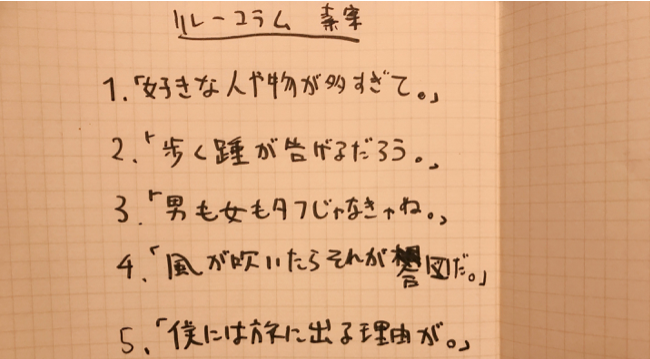 リレーコラム 素案
1.「好きな人や物が多すぎて。」
2.「歩く踵が告げるだろう。」
3.「男も女もタフじゃなきゃね。」
4.「風が吹いたらそれが合図だ。」
5.「僕には旅に出る理由が。」